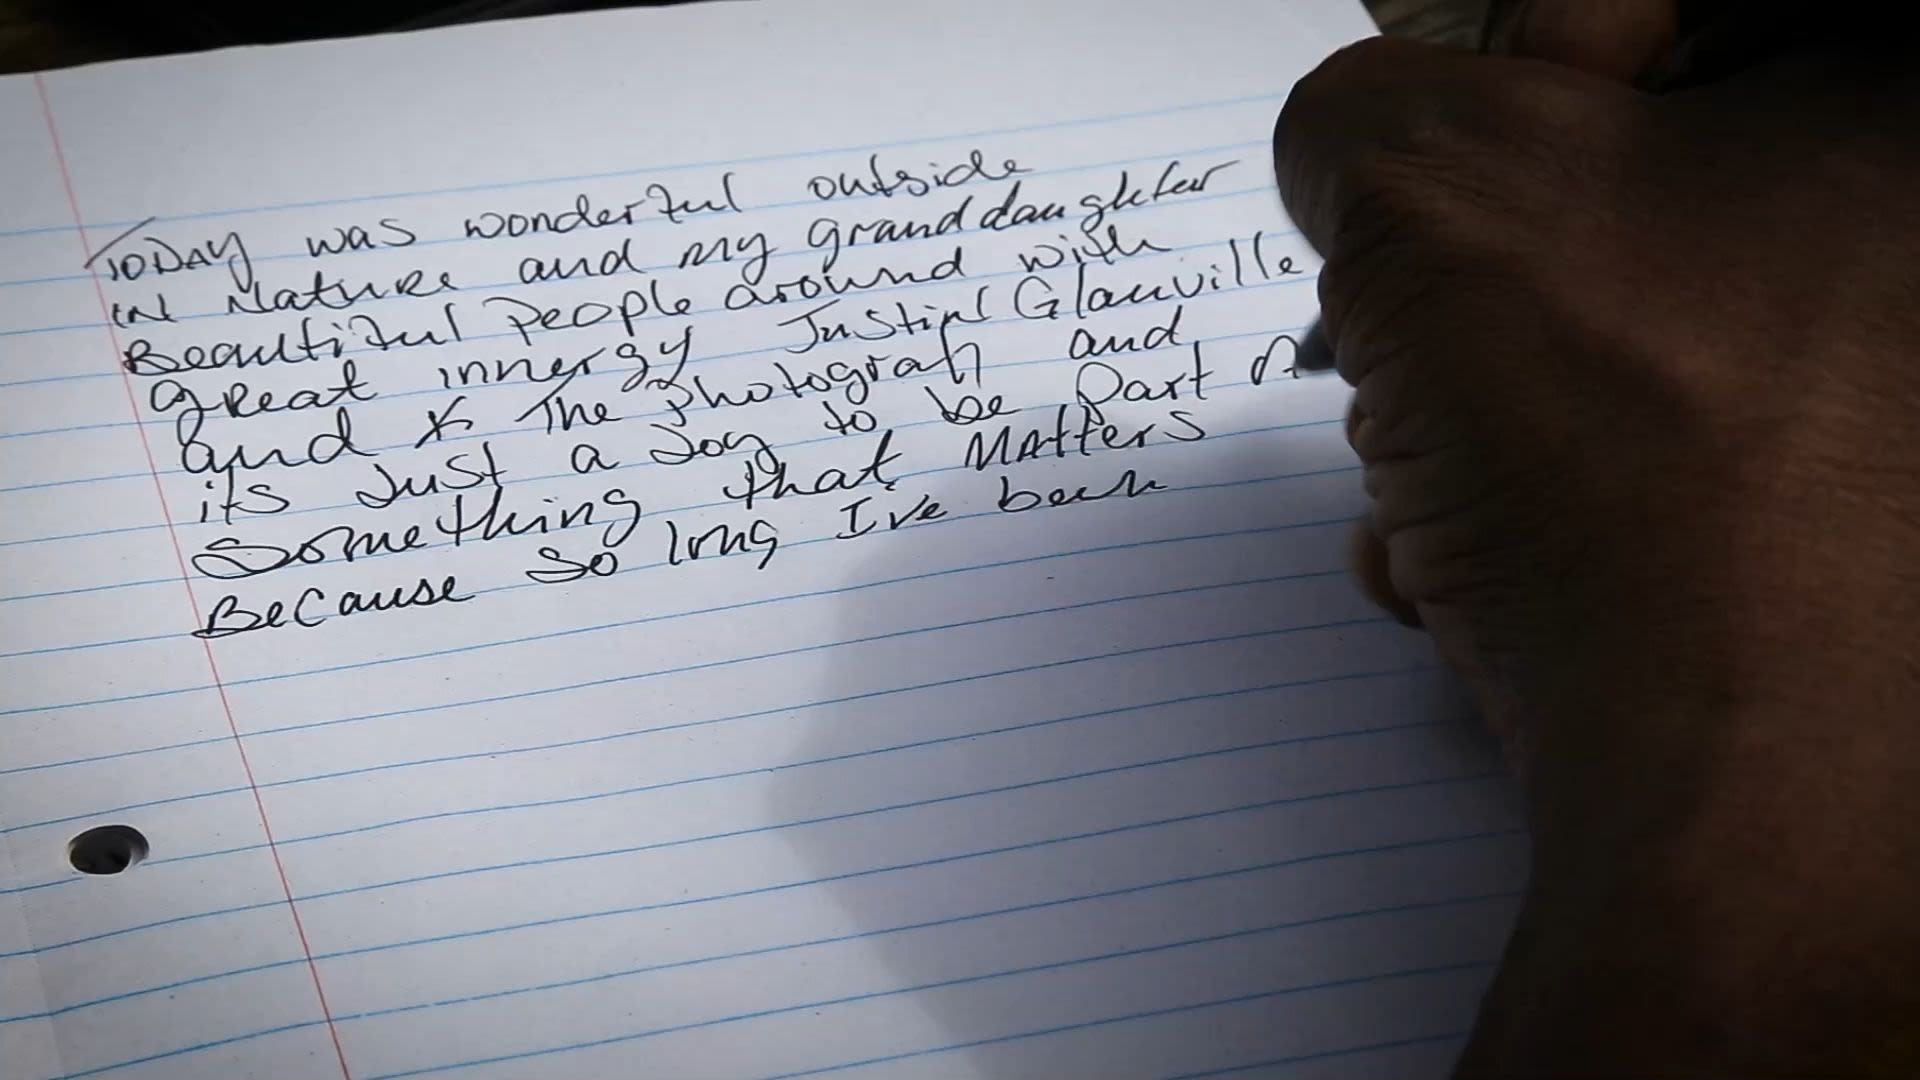 TODAY was wonderful outside
in Nature and my granddaughter
Beautiful People around with
great innergy Justin Glanville
and The Photografh and
its Just a Joy to be Part of
Something that Matters
Because so long I've been